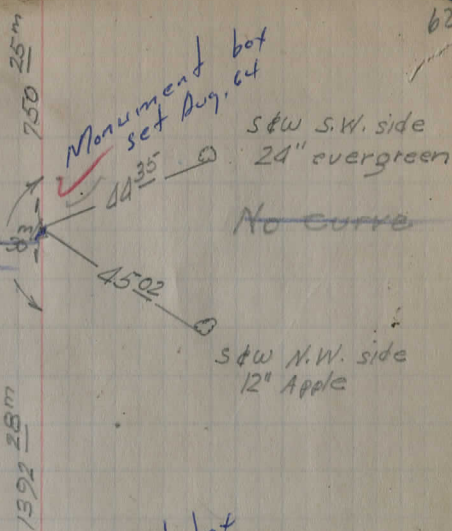 62
750 25 m
Monument box
set Aug. 64
S&W S.W. side
24" evergreen
44 35
No Curve
45 02
S&W N.W. side
12" Apple
1392 28 m